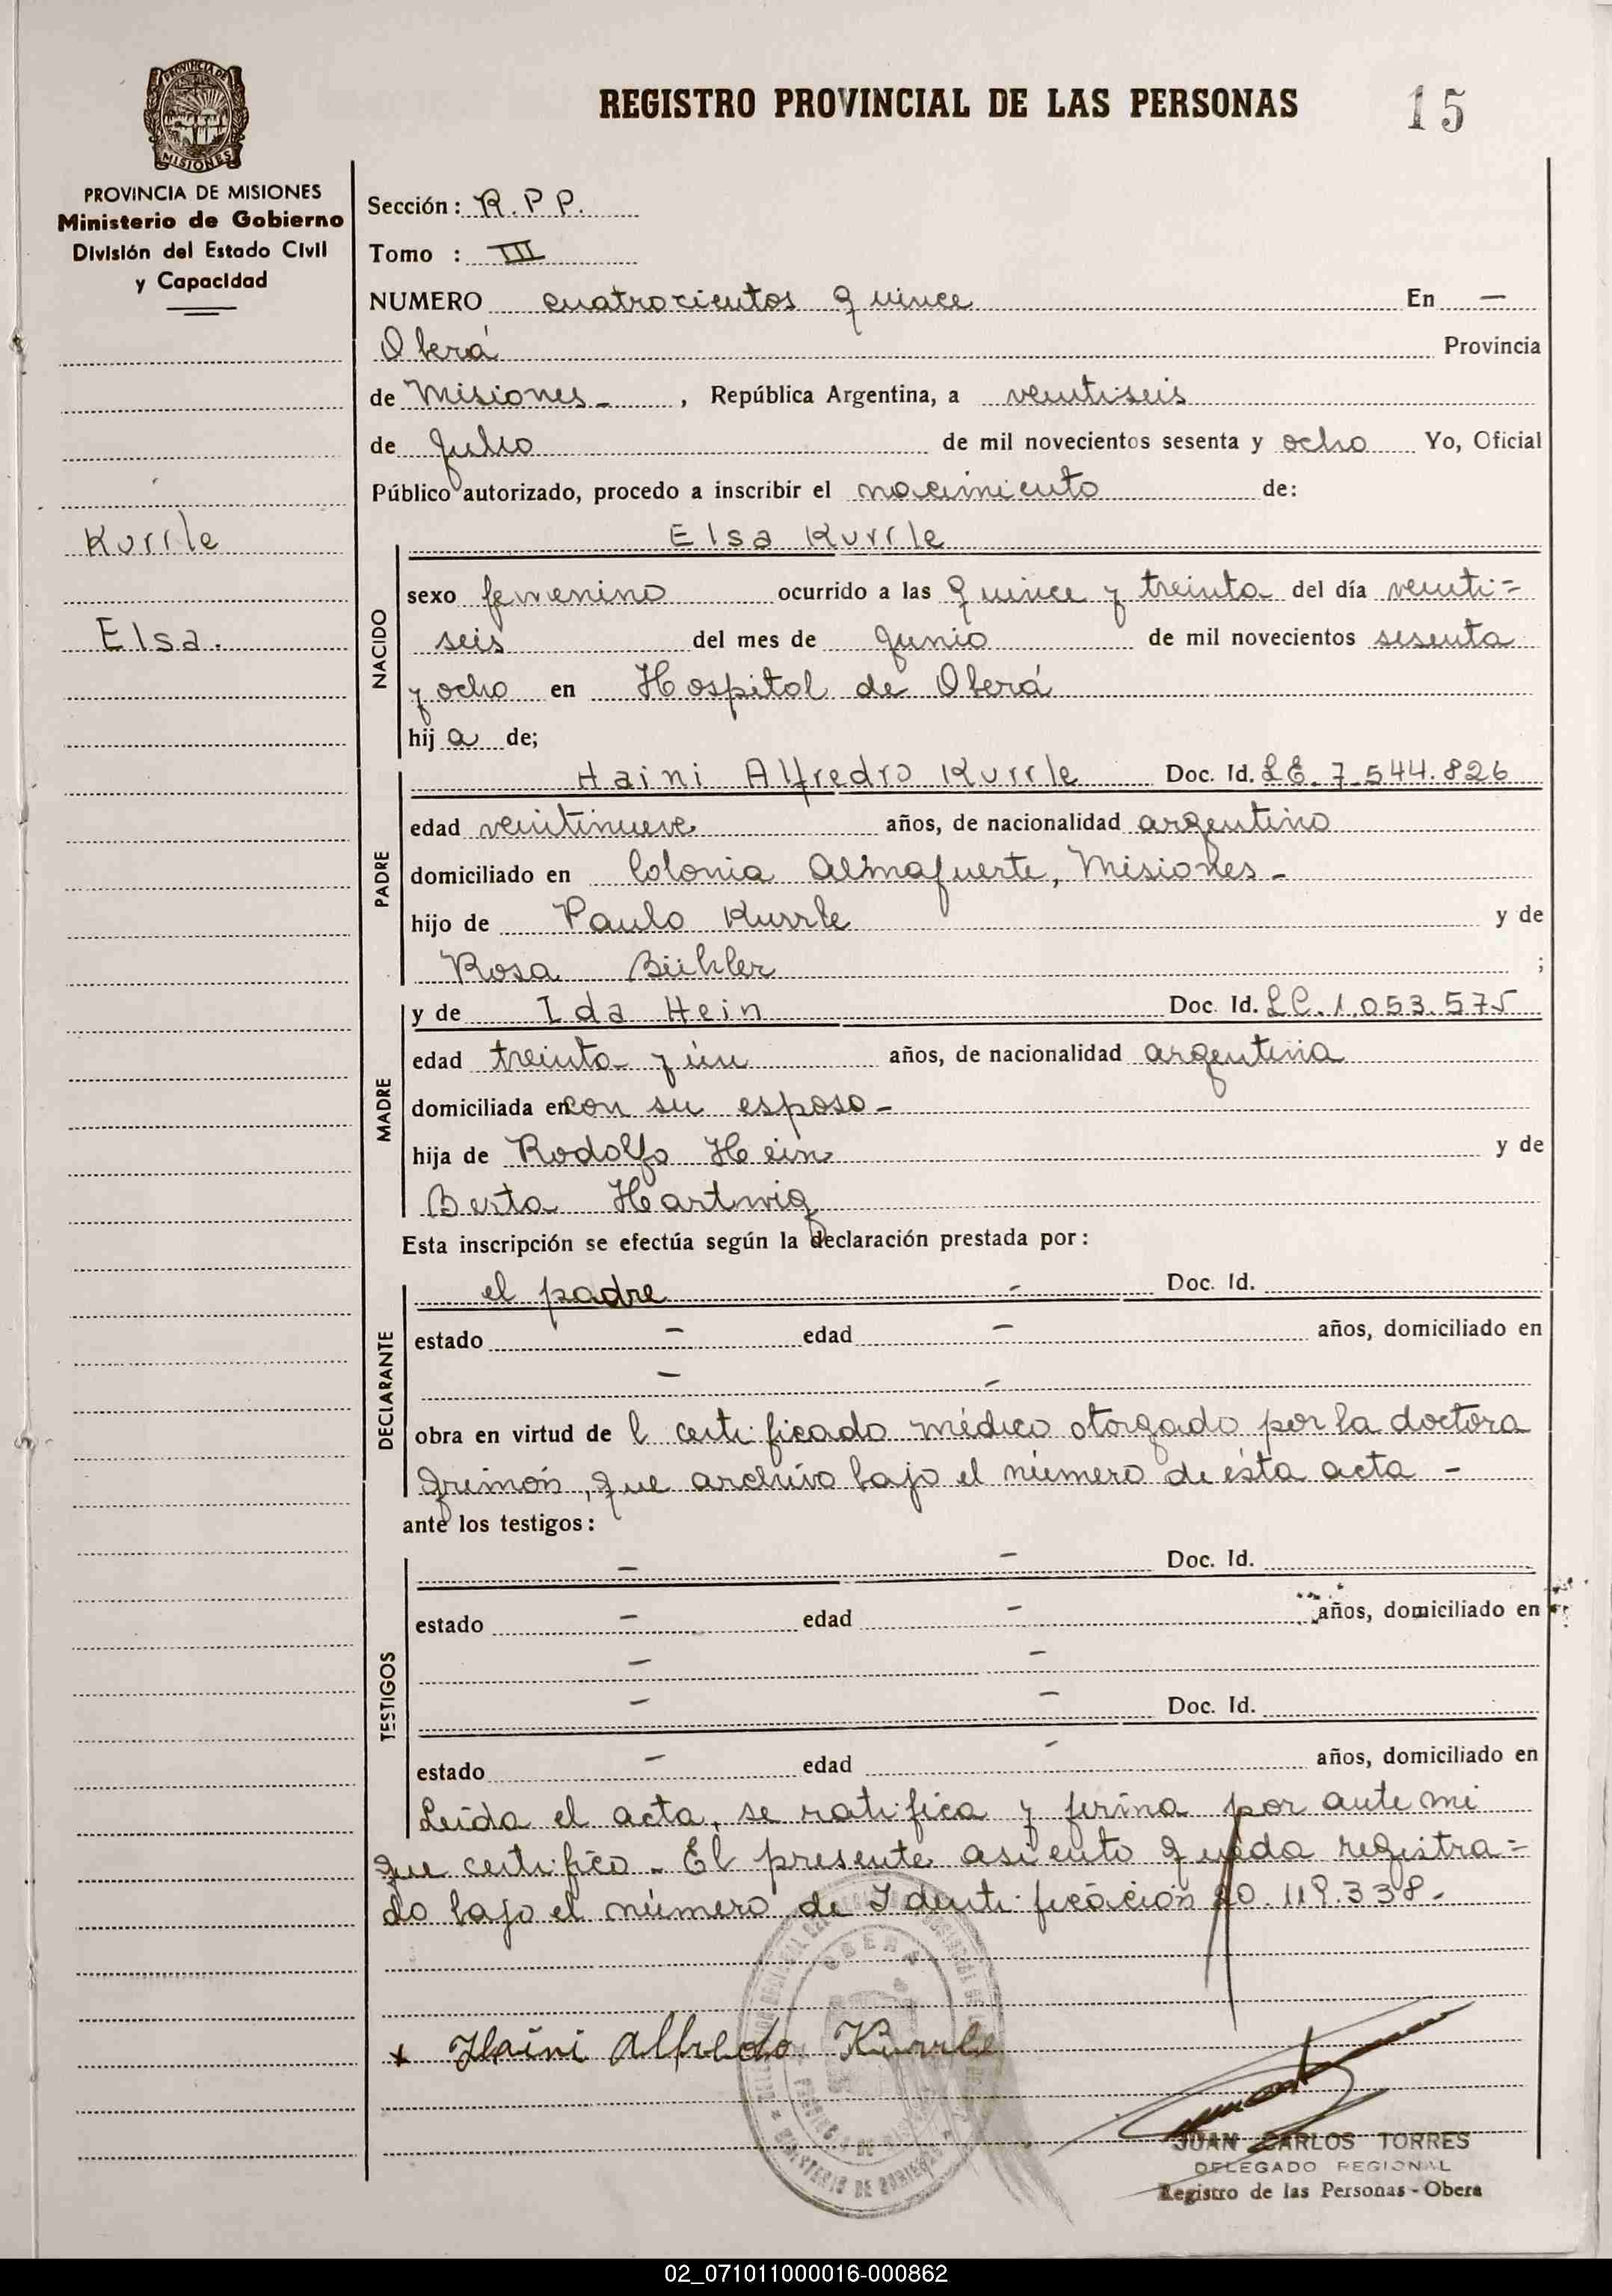 REGISTRO PROVINCIAL DE LAS PERSONAS 15
PROVINCIA DE MISIONES
PROVINCIA DE MISIONES
Ministerio de Gobierno
División del Estado Civil
y Capacidad
Kurrle
Elsa.
Sección: R.P.P.
Tomo : III
NUMERO cuatrocientos quince En —
Oberá Provincia
de Misiones - , República Argentina, a veintiseis
de Julio de mil novecientos sesenta y ocho Yo, Oficial
Público autorizado, procedo a inscribir el nacimiento de:
Elsa Kurrle
NACIDO
sexo femenino ocurrido a las quince y treinta del día veinti=
seis del mes de Junio de mil novecientos sesenta
y ocho en Hospital de Oberá
hij a de;
PADRE
Haini Alfredro Kurrle Doc. Id. LE. 7.544.826
edad veintinueve años, de nacionalidad argentino
domiciliado en Colonia Almafuerte, Misiones -
hijo de Paulo Kurrle y de
Rosa Bühler ;
MADRE
y de Ida Hein Doc. Id. LC. 1.053.575
edad treinta y ún años, de nacionalidad argentina
domiciliada en con su esposo -
hija de Rodolfo Hein y de
Berta Hartwig
Esta inscripción se efectúa según la declaración prestada por:
DECLARANTE
el padre - Doc. Id.
estado — edad — años, domiciliado en
— —
obra en virtud de l certificado médico otorgado por la doctora
que archivo bajo el número de ésta acta -
ante los testigos:
TESTIGOS
— — Doc. Id.
estado — edad — años, domiciliado en
— —
— — Doc. Id.
estado — edad — años, domiciliado en
Leída el acta, se ratifica y firma por ante mi
que certifico - El presente asiento queda registra=
do bajo el número de Identificación 20.119.338-
OBERA
x Haini Alfredo Kurrle
JUAN CARLOS TORRES
DELEGADO REGIONAL
Registro de las Personas - Obera
02_071011000016-000862